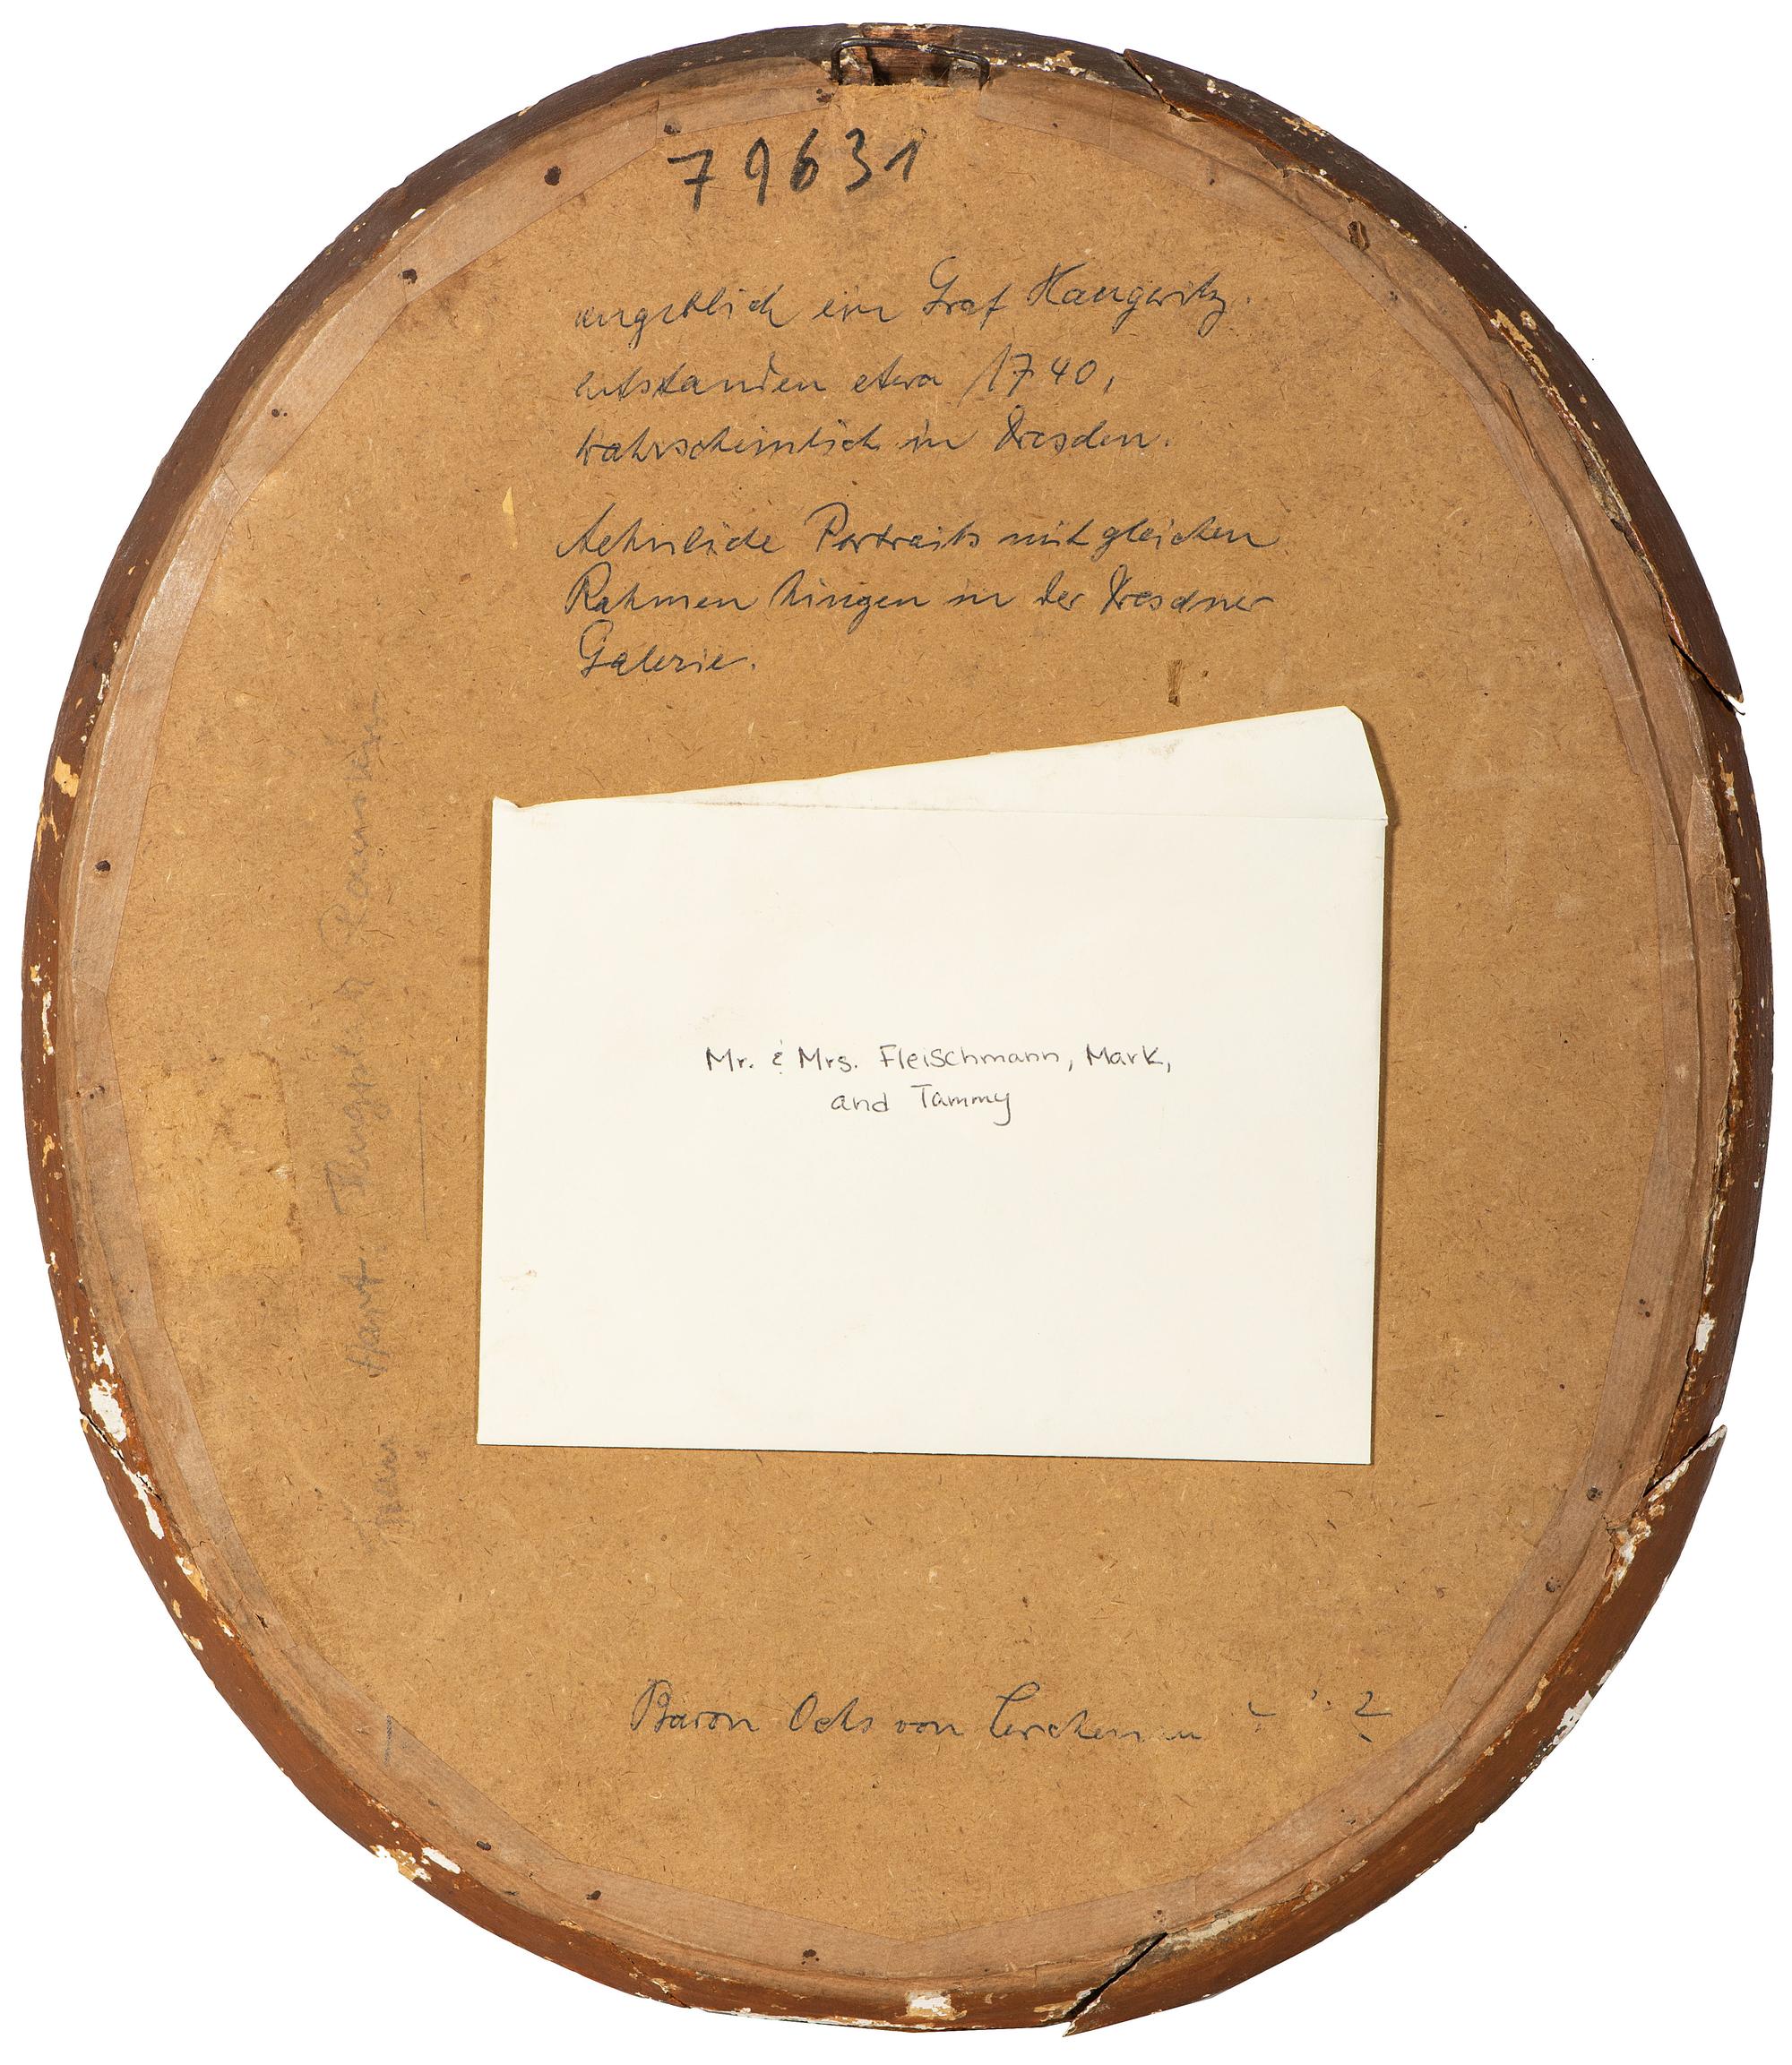 79631
angeblich ein Graf Haugwitz.
entstanden etwa 1740,
wahrscheinlich in Dresden.
Aehnliche Portraits mit gleichen
Rahmen hingen in der Dresdner
Galerie.
Mr. & Mrs. Fleischmann, Mark,
and Tammy
Baron Ochs von Lerchenau ?